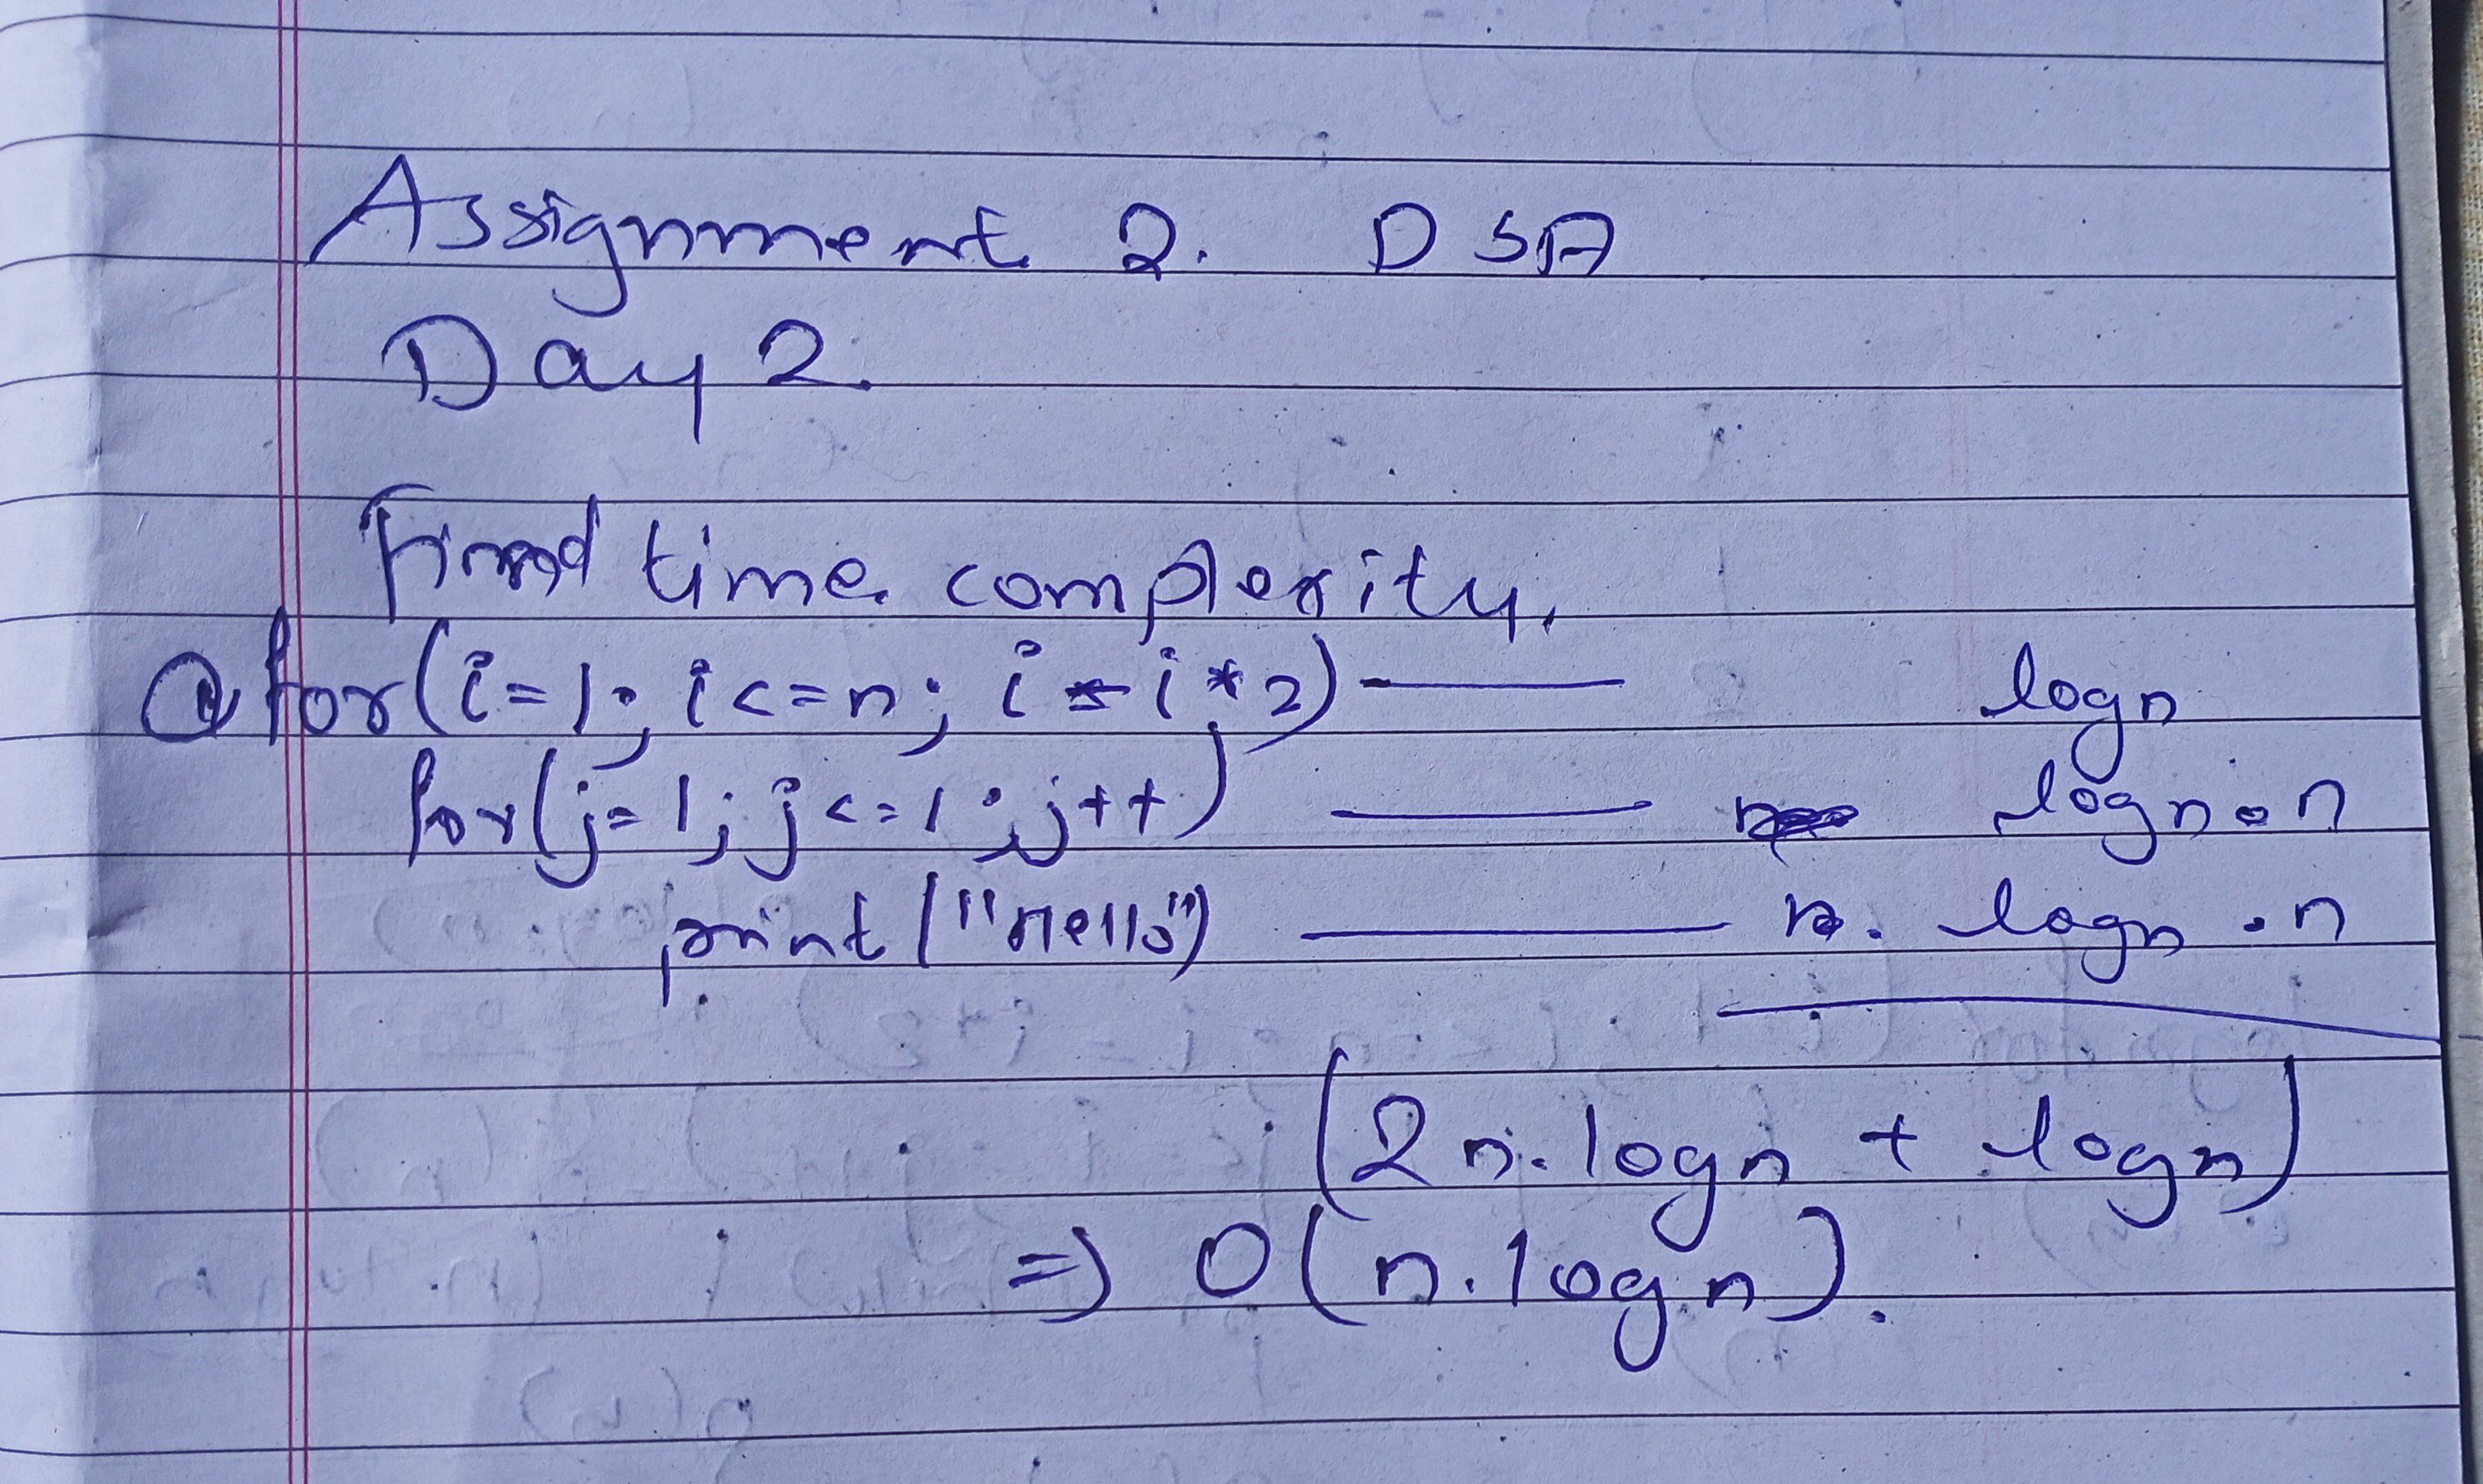 Assignment 2. DSA
Day 2.
Find time complexity.
for(i=1; i<=n; i=i*2) — logn
for(j=1; j<=1; j++) — logn.n
print("Hello") — n. logn.n
(2n.logn + logn)
=> O(n.logn).